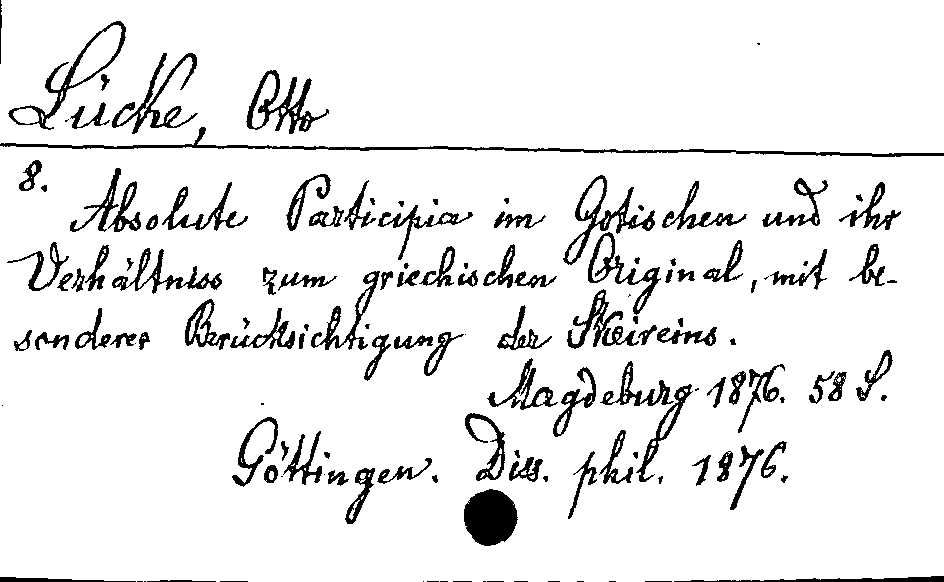 Lücke, Otto
8.
Absolute Participia im Gotischen und ihr
Verhältniss zum griechischen Original, mit be-
sonderer Berücksichtigung der Skeireins.
Magdeburg 1876. 58 S.
Göttingen. Diss. phil. 1876.